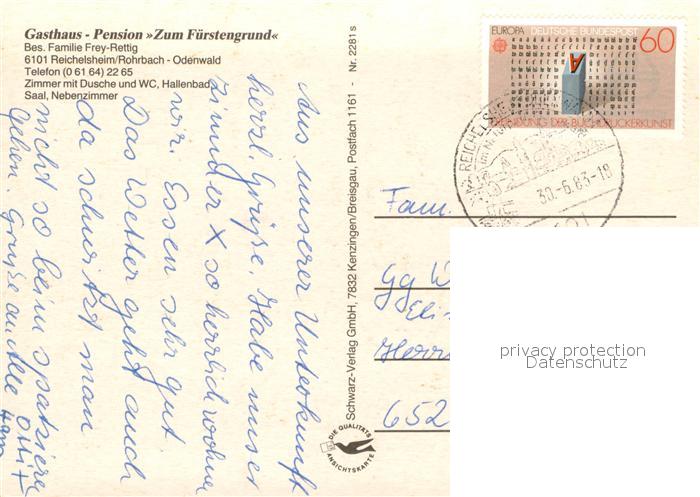 Gasthaus - Pension »Zum Fürstengrund«
Bes. Familie Frey-Rettig
6101 Reichelsheim/Rohrbach - Odenwald
Telefon (0 61 64) 22 65
Zimmer mit Dusche und WC, Hallenbad
Saal, Nebenzimmer
Aus unserer Unterkunft
herzl. Grüße. Habe unser
Zimmer X so herrlich wohnen
wir. Essen sehr gut
Das Wetter geht auch
da schwitzt man
nicht so beim spaziere
gehen. Grüße an alle
Schwarz-Verlag GmbH, 7832 Kenzingen/Breisgau, Postfach 1161 - Nr. 2281 s
DIE QUALITÄTS
ANSICHTSKARTE
EUROPA DEUTSCHE BUNDESPOST 60
A
ERFINDUNG DER BUCHDRUCKERKUNST
REICHELSHEIM
30.-6.83-18
Fam.
Gg W
Herrn
652
privacy protection
Datenschutz